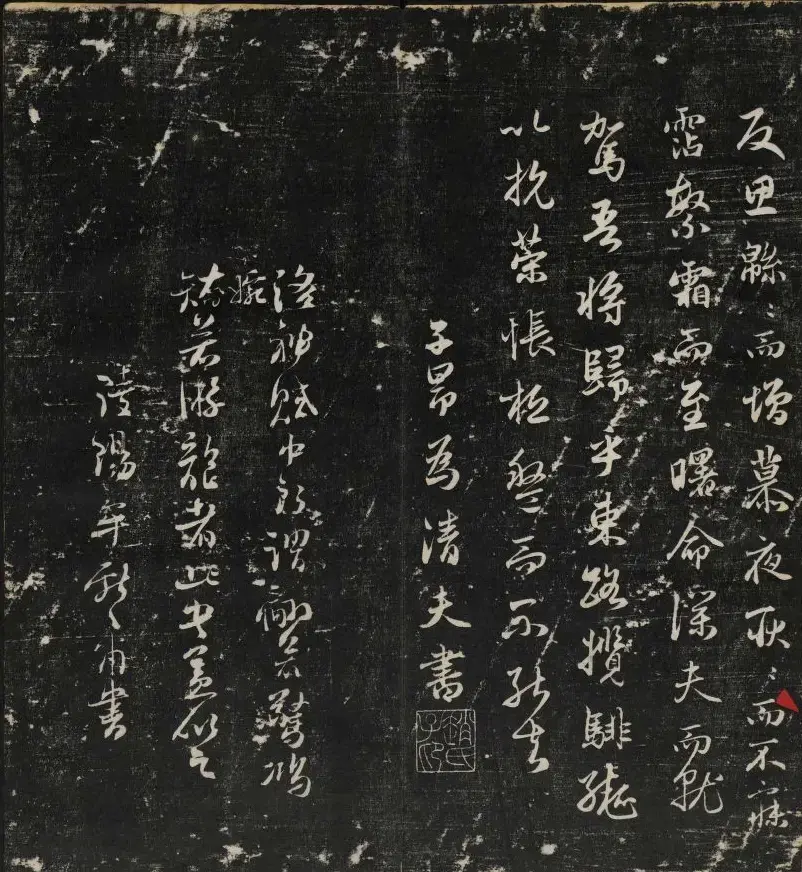 反思緜〻而增慕夜耿〻而不寐
霑繁霜而至曙命僕夫而就
駕吾將歸乎東路攬騑轡
以抗策悵桓盤而不能去
子昂為清夫書
趙氏子昂
洛神賦中所謂翩若驚鴻
婉
矯若游龍者此書蓋似之
陵陽牟書